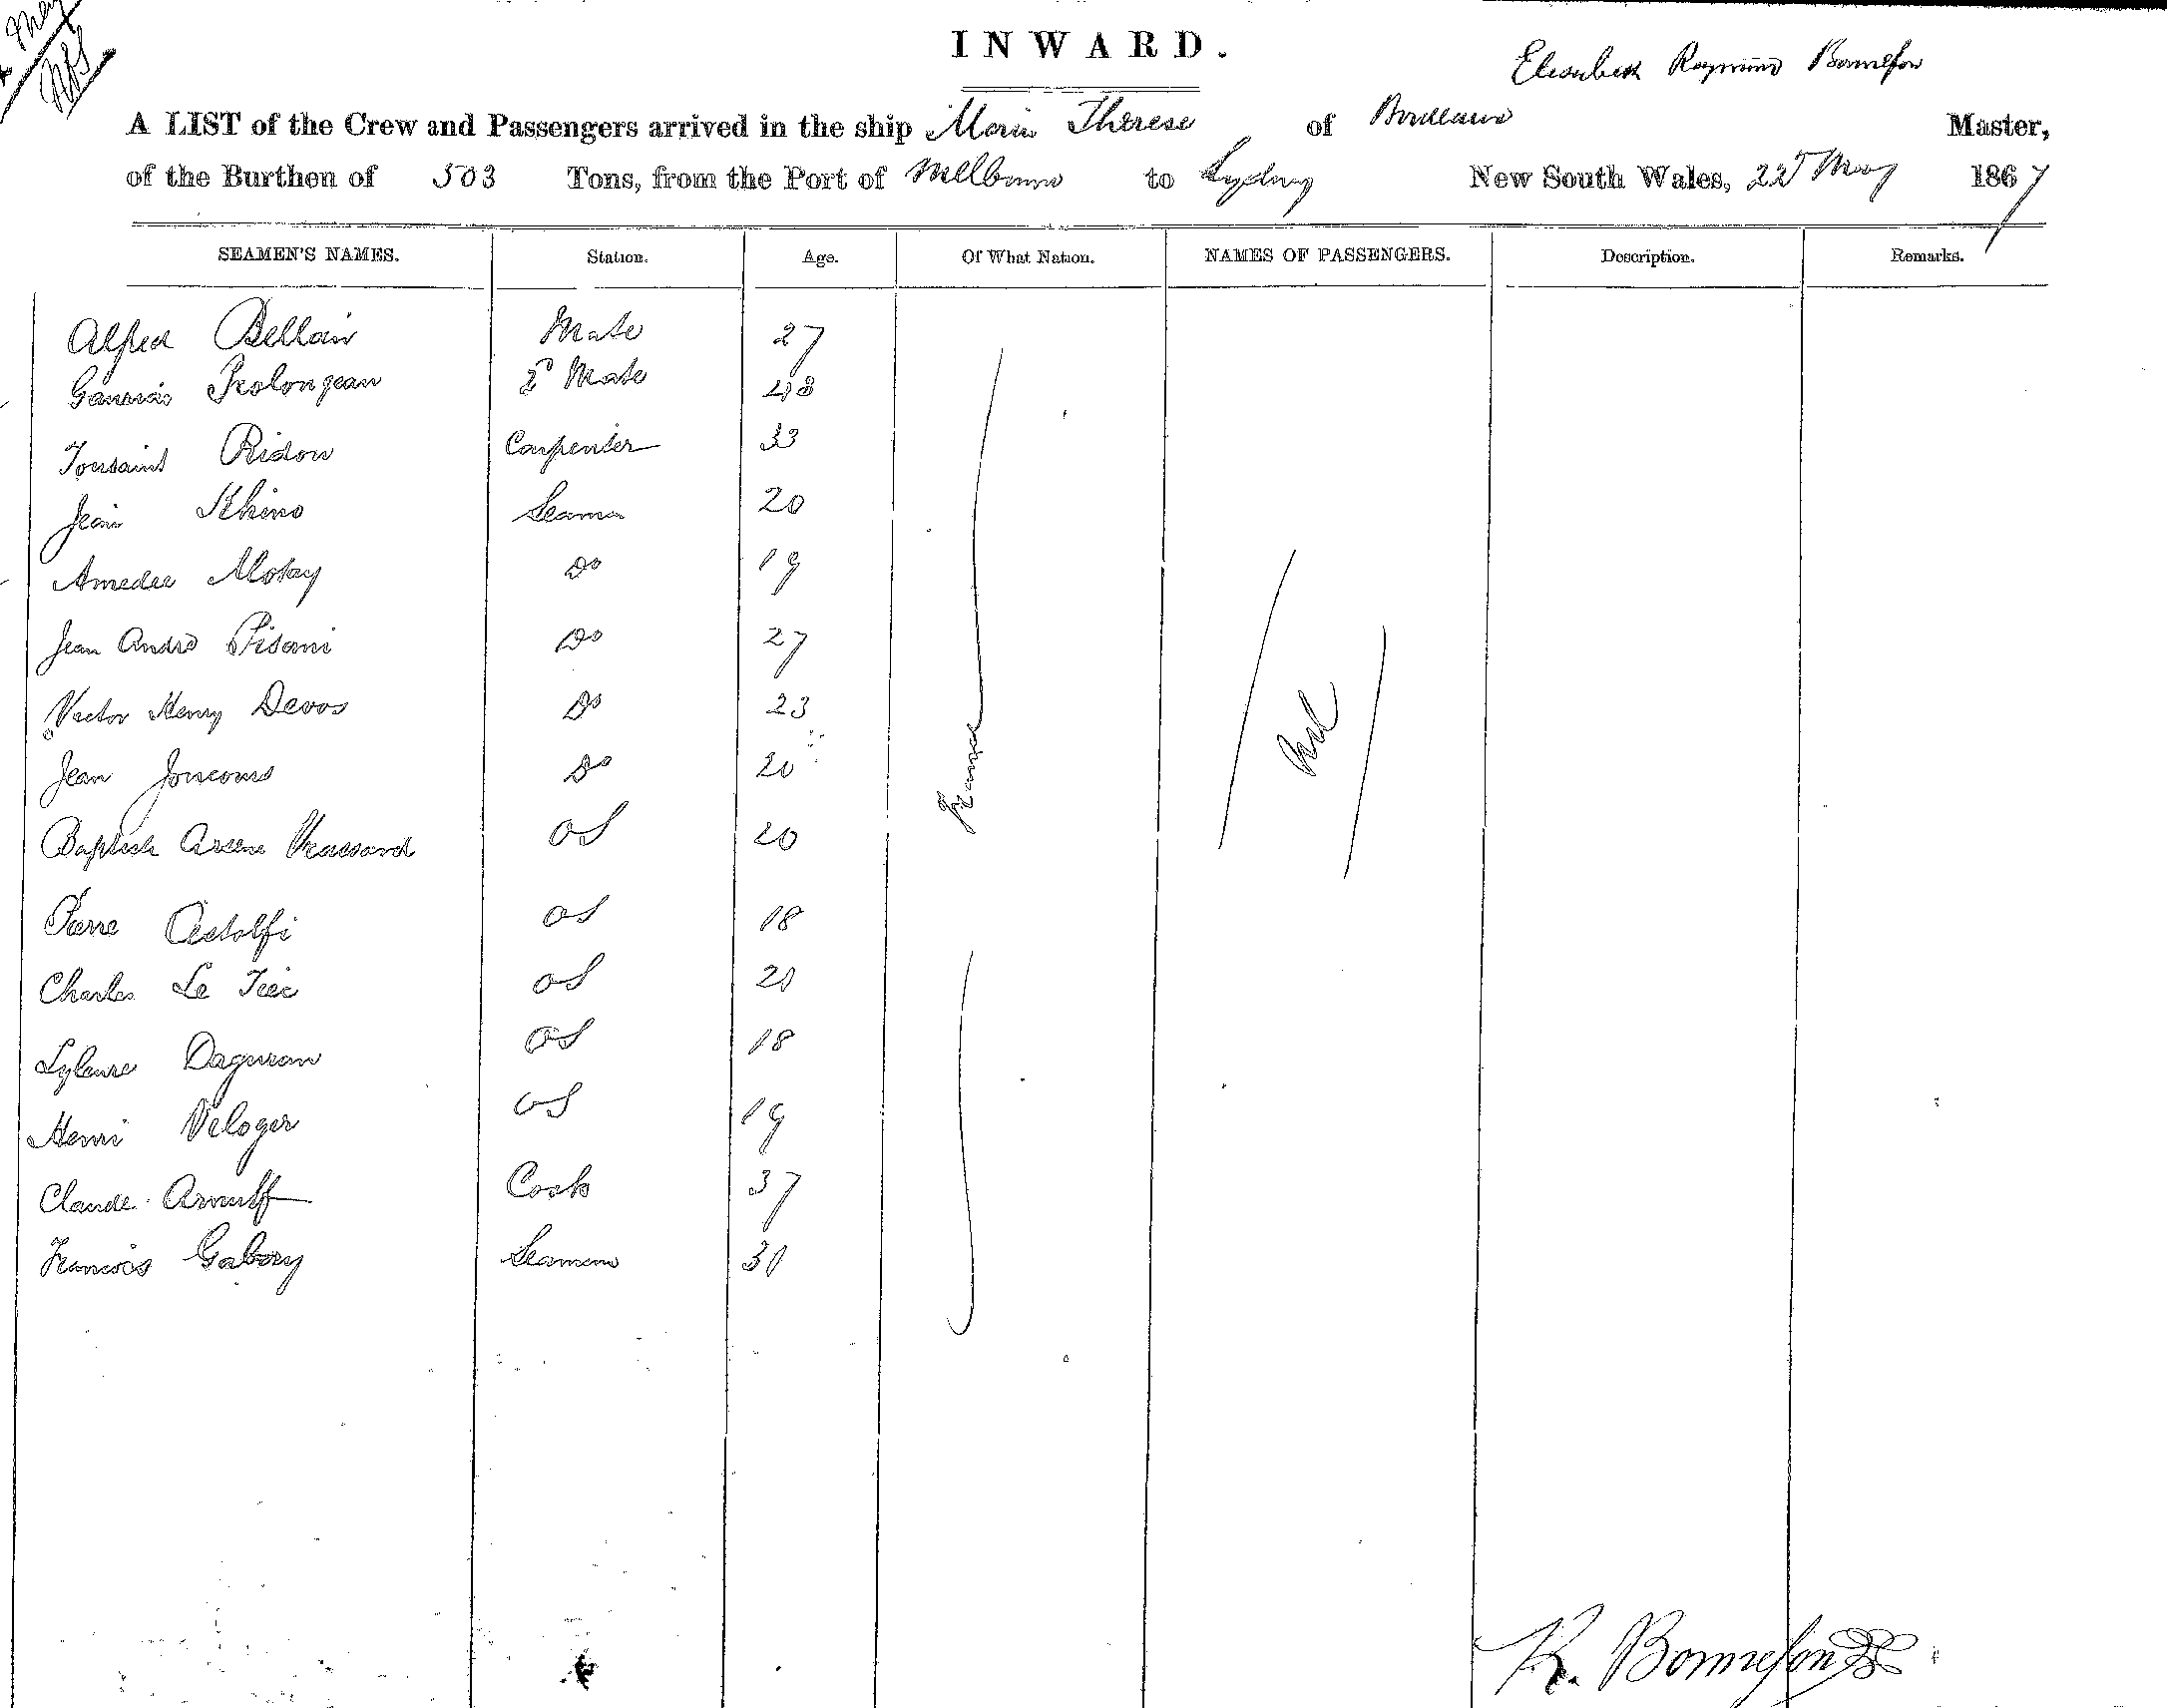 May
INWARD.
Raymond Bonnefon
A LIST of the Crew and Passengers arrived in the ship Marie Therese of Bordeaux Master,
of the Burthen of 503 Tons, from the Port of Melbourne to Sydney New South Wales, 22d May 1867
SEAMEN'S NAMES. Station. Age. Of What Nation. NAMES OF PASSENGERS. Description. Remarks.
Alfred Bellain Mate 27
Prolongeau 2d Mate 48
Toussaint Ridou Carpenter 33
Jean Seaman 20
Amedee Motay Do 19
Jean André Pisani Do 27
Victor Henry Devos Do 23
Jean Do 20
France
nil
Baptiste Arsene OS 20
Pierre Astolfi OS 18
Charles Le Tiec OS 21
Daguran OS 18
Henri Veloger OS 19
Claude Arnulf Cook 37
Francois Gabory Seaman 31
R. Bonnefon